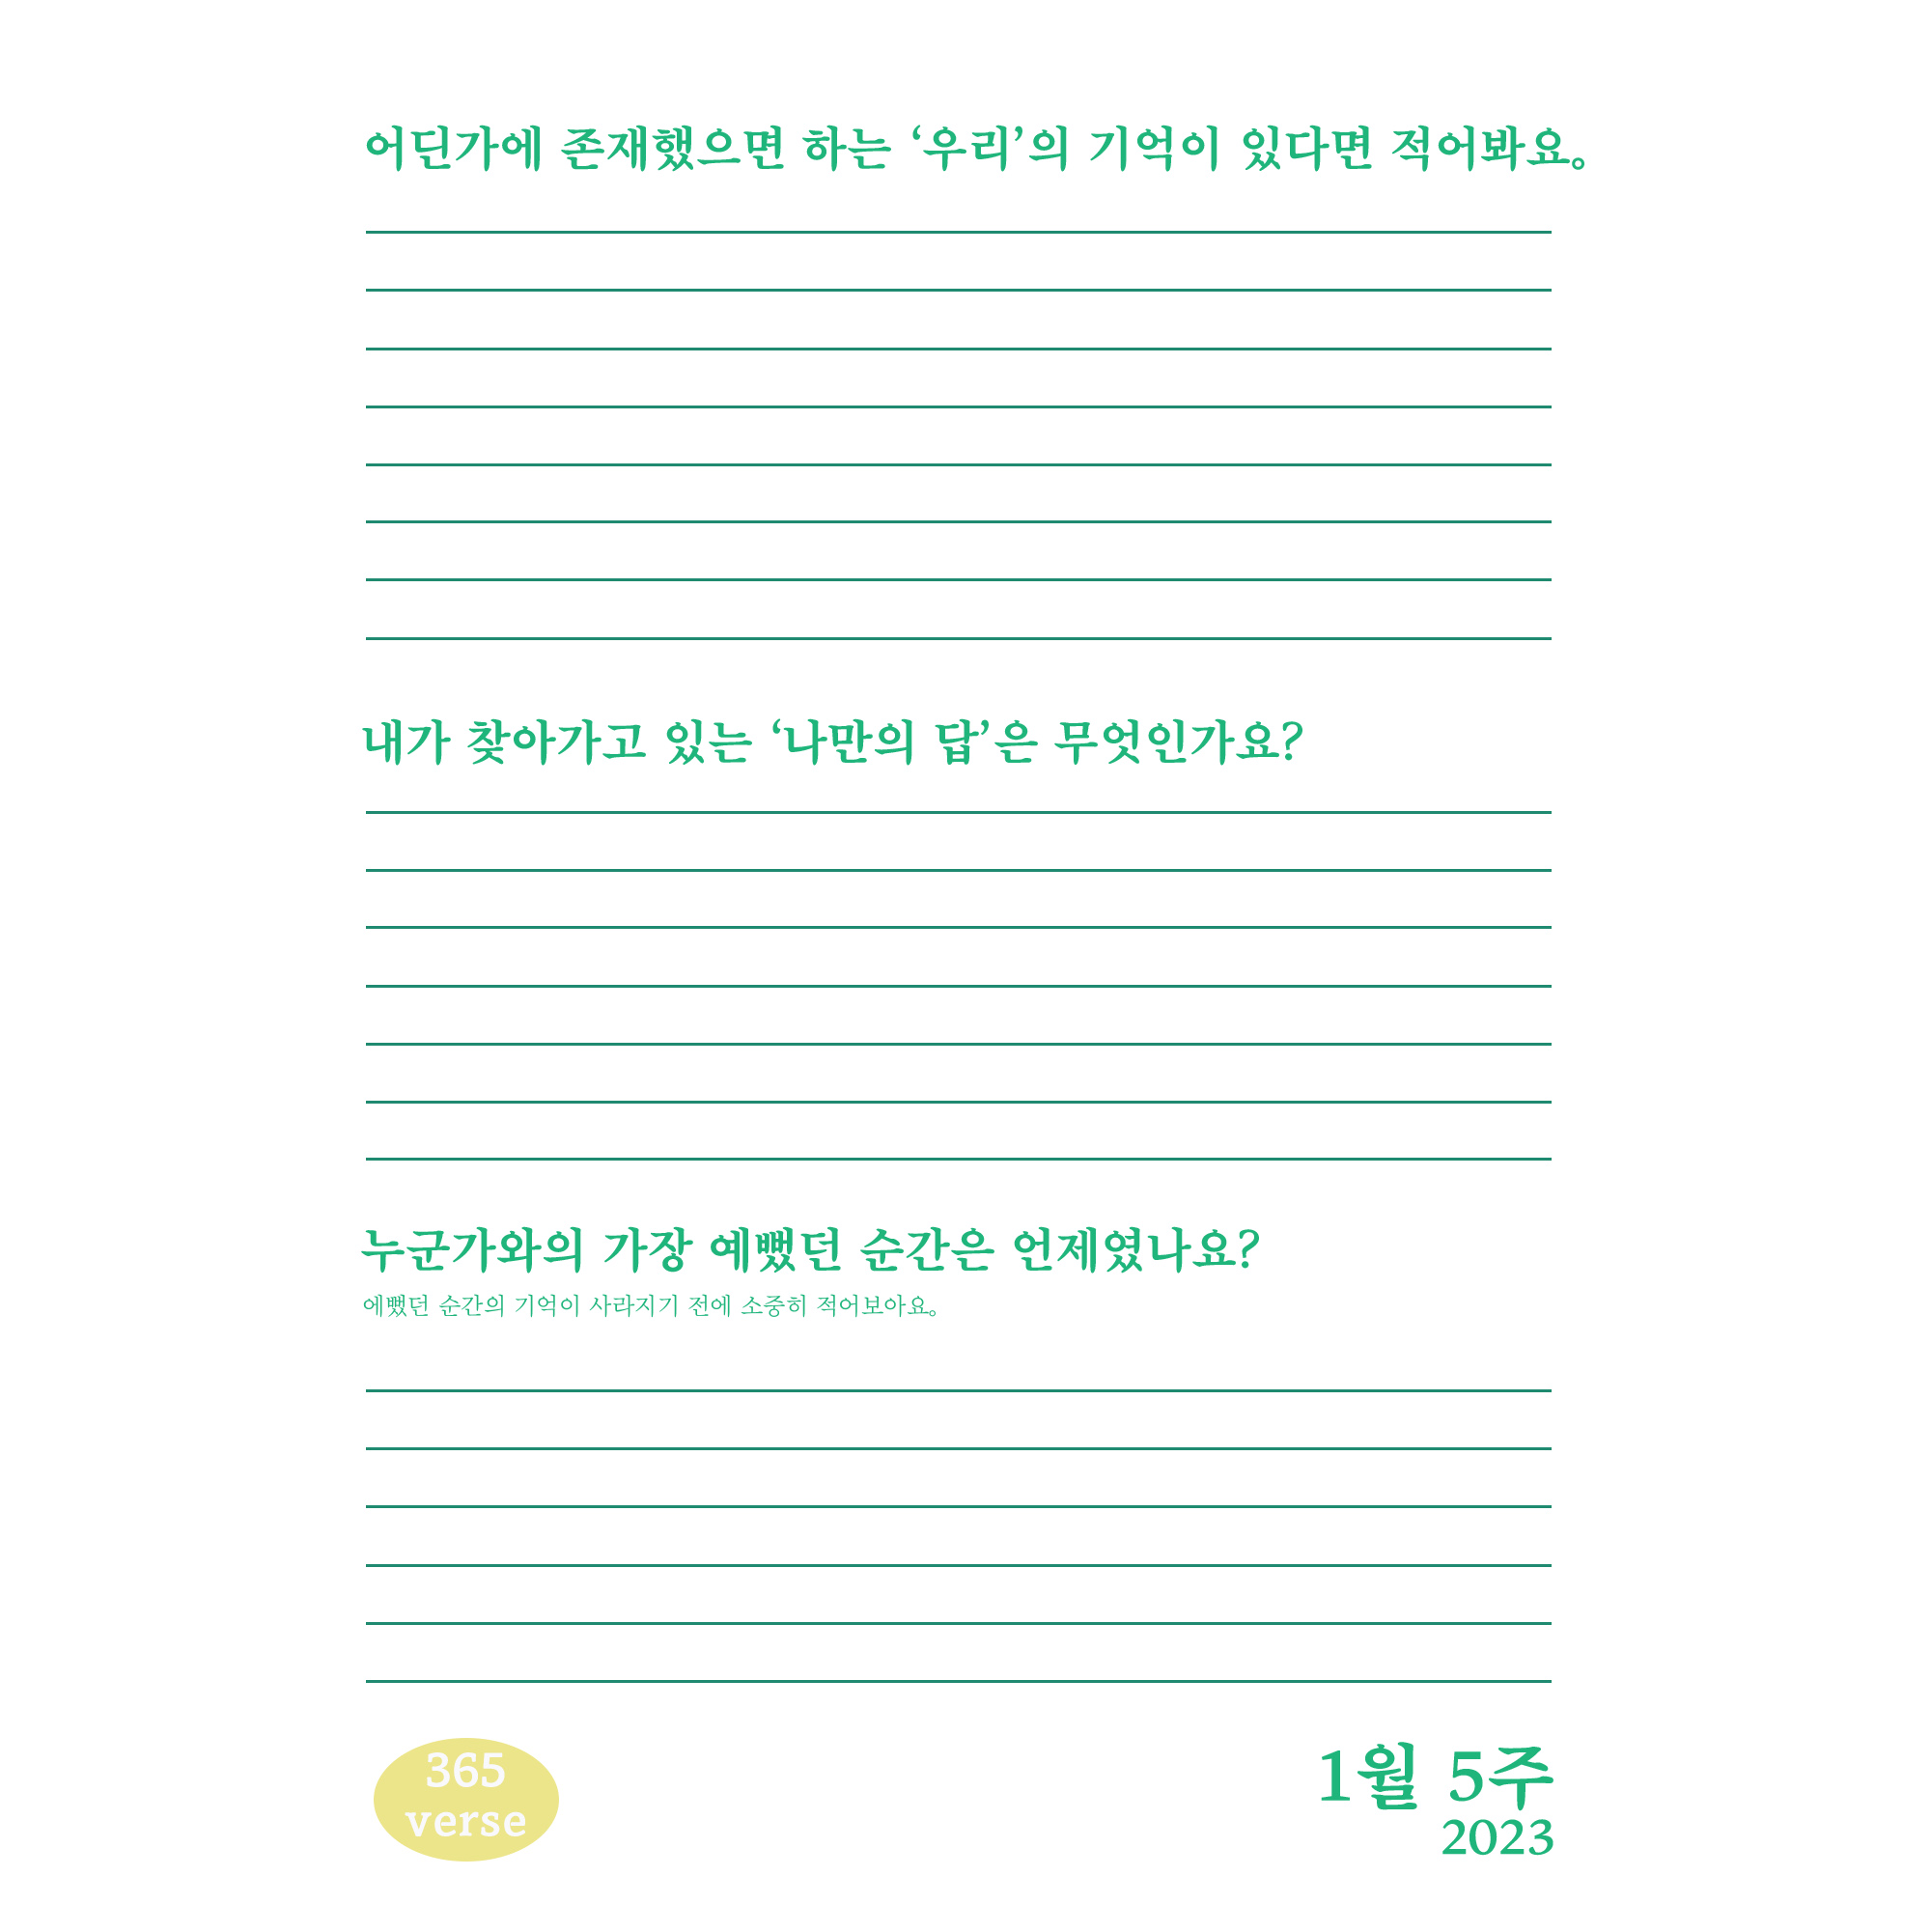 어딘가에 존재했으면 하는 ‘우리’의 기억이 있다면 적어봐요。
내가 찾아가고 있는 ‘나만의 답’은 무엇인가요?
누군가와의 가장 예뻤던 순간은 언제였나요?
예뻤던 순간의 기억이 사라지기 전에 소중히 적어보아요。
365
verse
1월 5주
2023